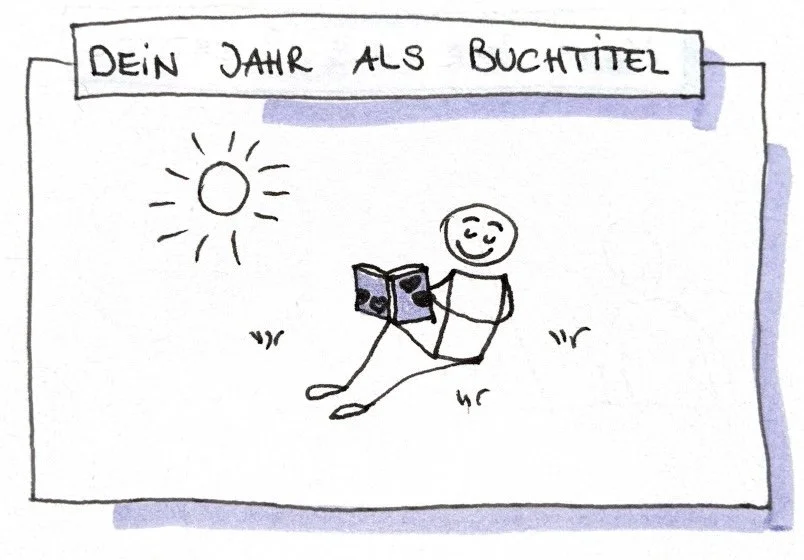 DEiN JAHR ALS BUCHTiTEL